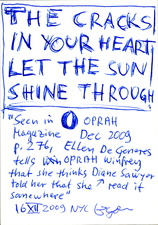 THE CRACKS
IN YOUR HEART
LET THE SUN
SHINE THROUGH
"Seen in O OPRAH
Magazine Dec 2009
p. 276, Ellen De Generes
tells OPRAH Winfrey
that she thinks Diane Sawyer
told her that she ↗ read it
somewhere"
16 XII 2009 NYC